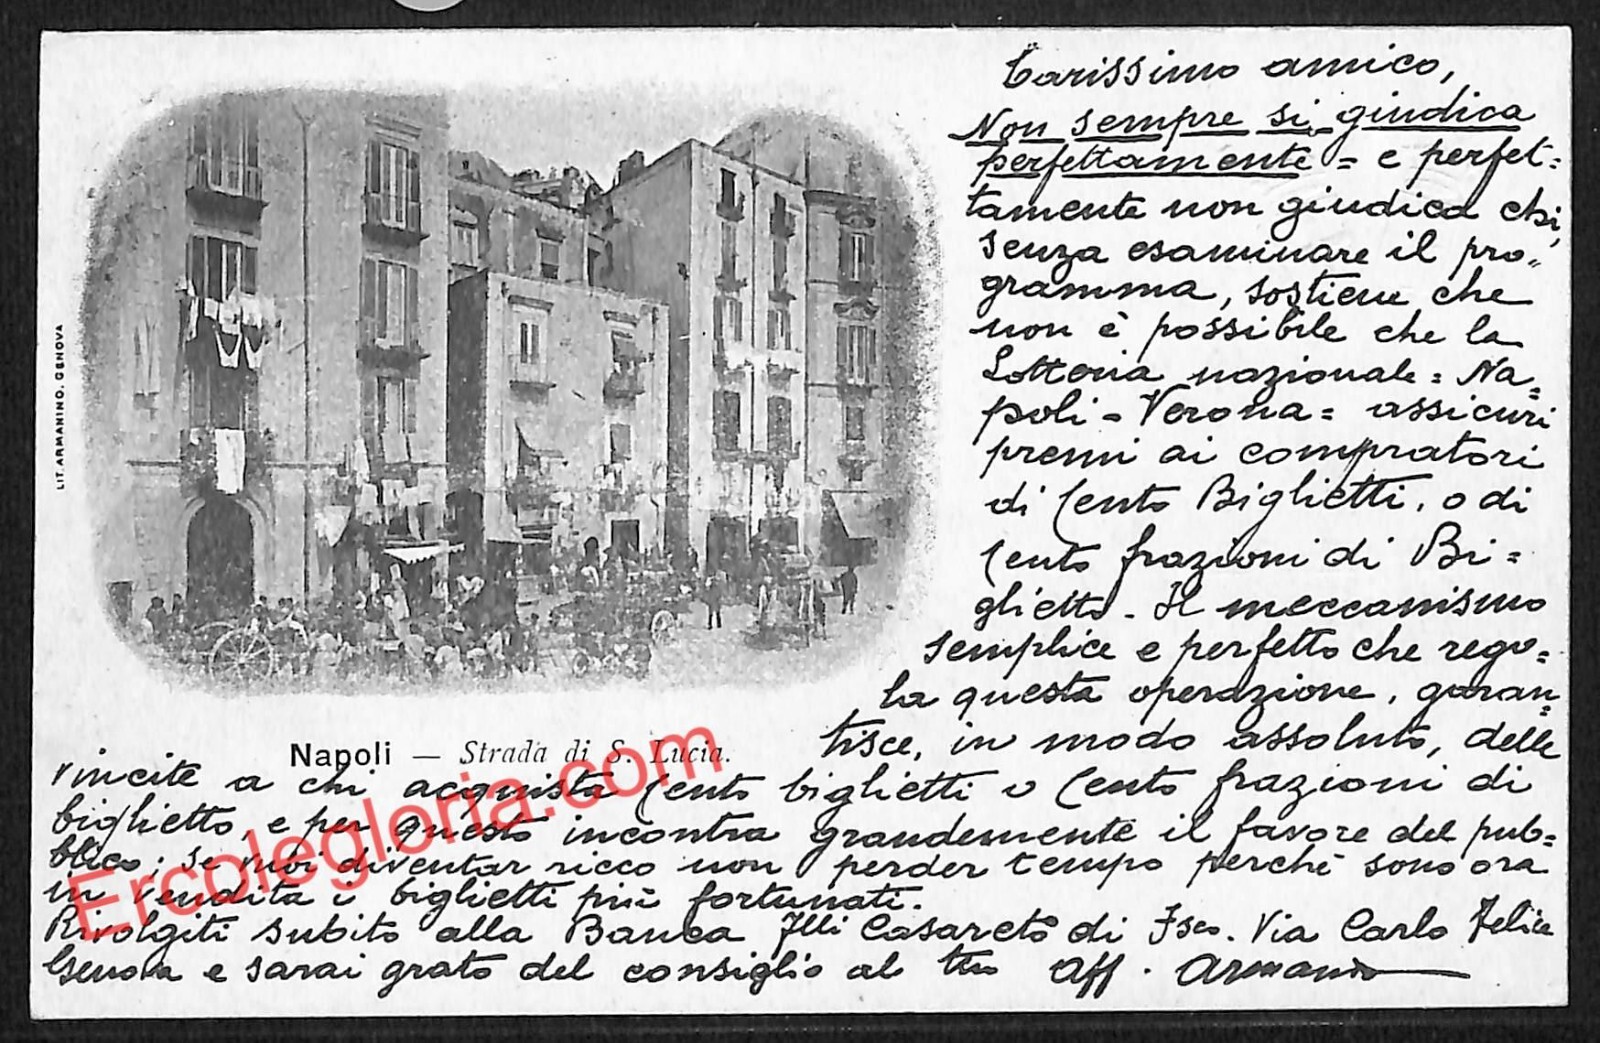 Carissimo amico,
Non sempre si giudica
perfettamente = e perfet=
tamente non giudica chi,
senza esaminare il pro„
gramma, sostiene che
non è possibile che la
Lotteria nazionale = Na=
poli - Verona = assicuri
premi ai compratori
di Cento Biglietti, o di
Cento frazioni di Bi=
glietto. Il meccanismo
semplice e perfetto che rego=
la questa operazione, garan=
tisce, in modo assoluto, delle
vincite a chi acquista Cento biglietti o Cento frazioni di
biglietto, e per questo incontra grandemente il favore del pub=
blico; se vuoi diventar ricco non perder tempo perchè sono ora
in vendita i biglietti più fortunati.
Rivolgiti subito alla Banca Flli Casareto di Fsco. Via Carlo Felice
Genova e sarai grato del consiglio al tuo Aff. Armando
Napoli — Strada di S. Lucia.
LIT. ARMANINO. GENOVA
Ercolegloria.com